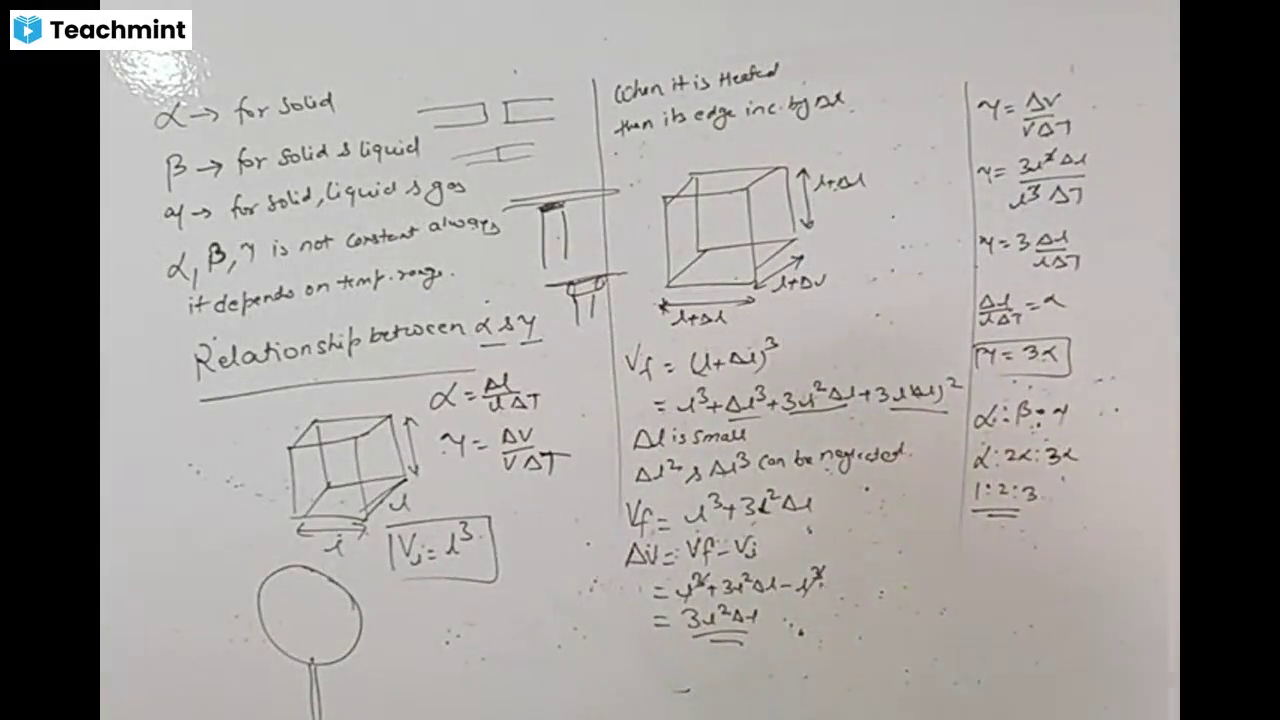 Teachmint
α → for solid
β → for solid & liquid
γ → for solid, liquid & gas
α, β, γ is not constant always
it depends on temp. range.
Relationship between α & γ
α = Δl / lΔT
γ = ΔV / VΔT
l
l
Vi = l³
When it is Heated
then its edge inc. by Δl.
l+Δl
l+Δl
l+Δl
Vf = (l+Δl)³
= l³ + Δl³ + 3l²Δl + 3l(Δl)²
Δl is small
Δl² & Δl³ can be neglected.
Vf = l³+3l²Δl
ΔV = Vf - Vi
= l³ + 3l²Δl - l³
= 3l²Δl
γ = ΔV / VΔT
γ = 3l²Δl / l³ ΔT
γ = 3 Δl / lΔT
Δl / lΔT = α
γ = 3α
α : β : γ
α : 2α : 3α
1 : 2 : 3